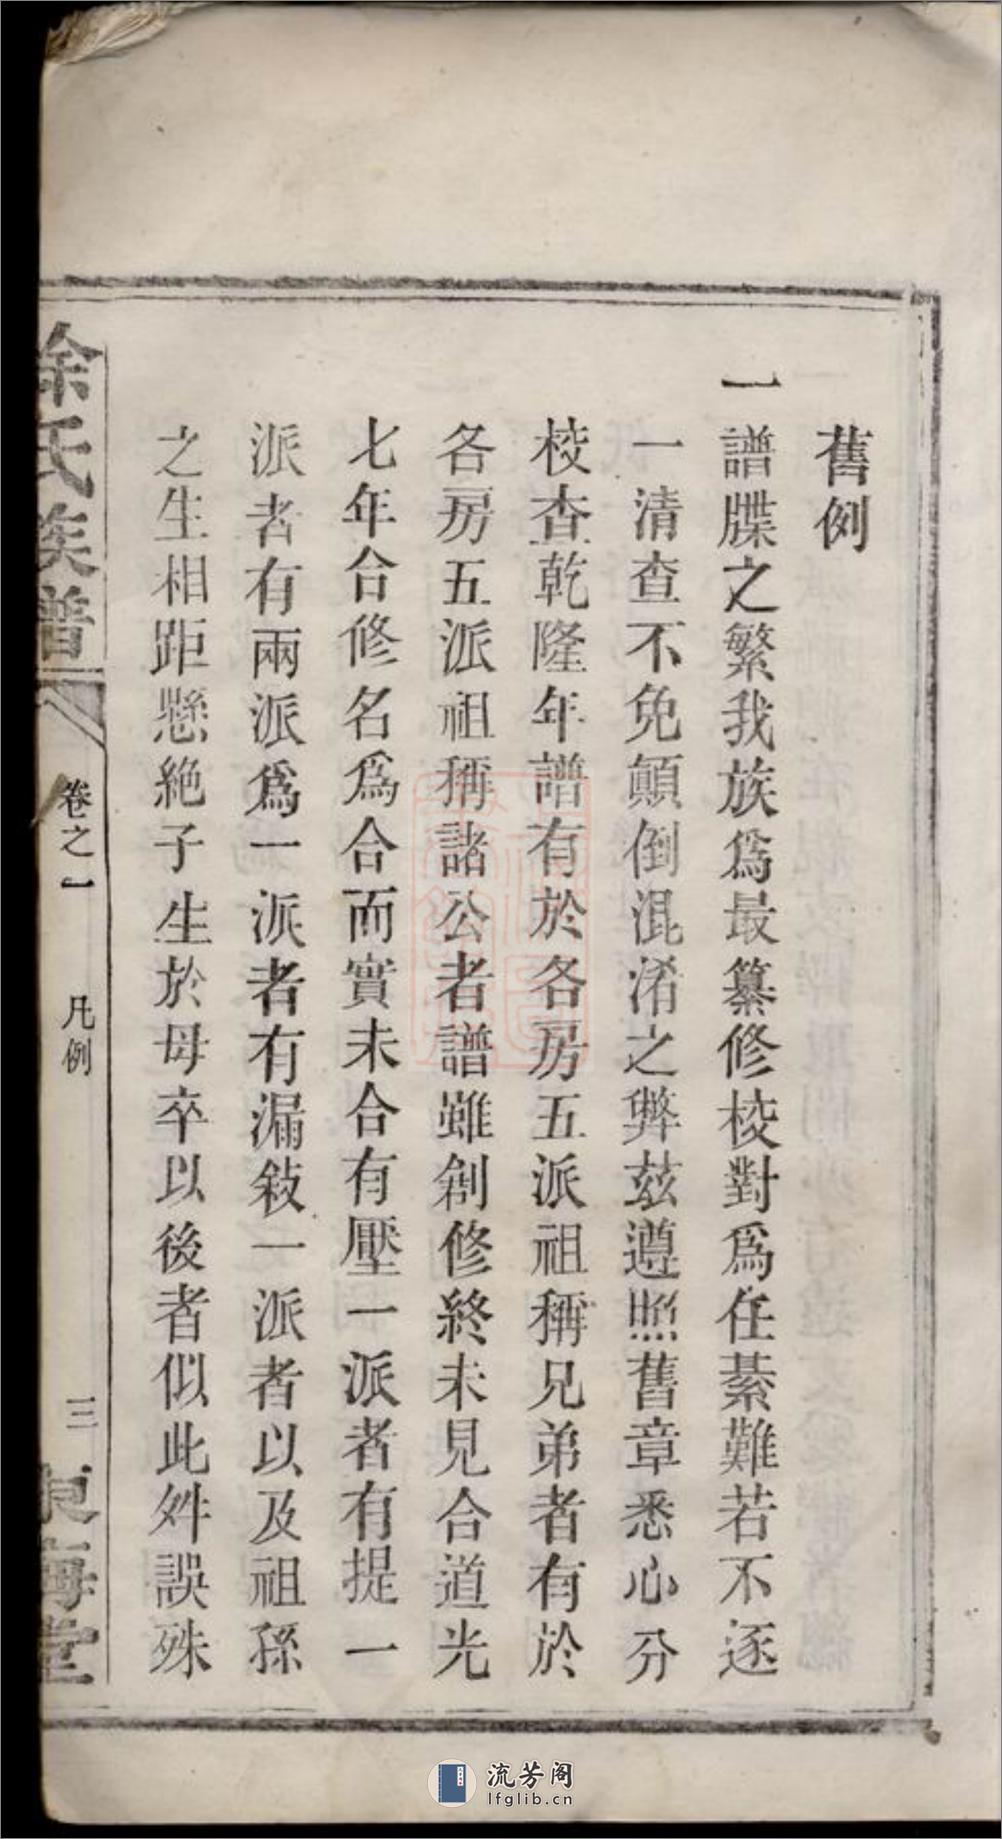 舊例
一譜牒之繁我族爲最纂修校對爲任綦難若不逐
一清查不免顛倒混淆之弊玆遵照舊章悉心分
校查乾隆年譜有於各房五派祖稱兄弟者有於
各房五派祖稱諸公者譜雖創修終未見合道光
七年合修名爲合而實未合有壓一派者有提一
派者有兩派爲一派者有漏敍一派者以及祖孫
之生相距懸絕子生於母卒以後者似此舛誤殊
徐氏族譜
卷之一
凡例
三
東海堂
流芳阁
lfglib.cn